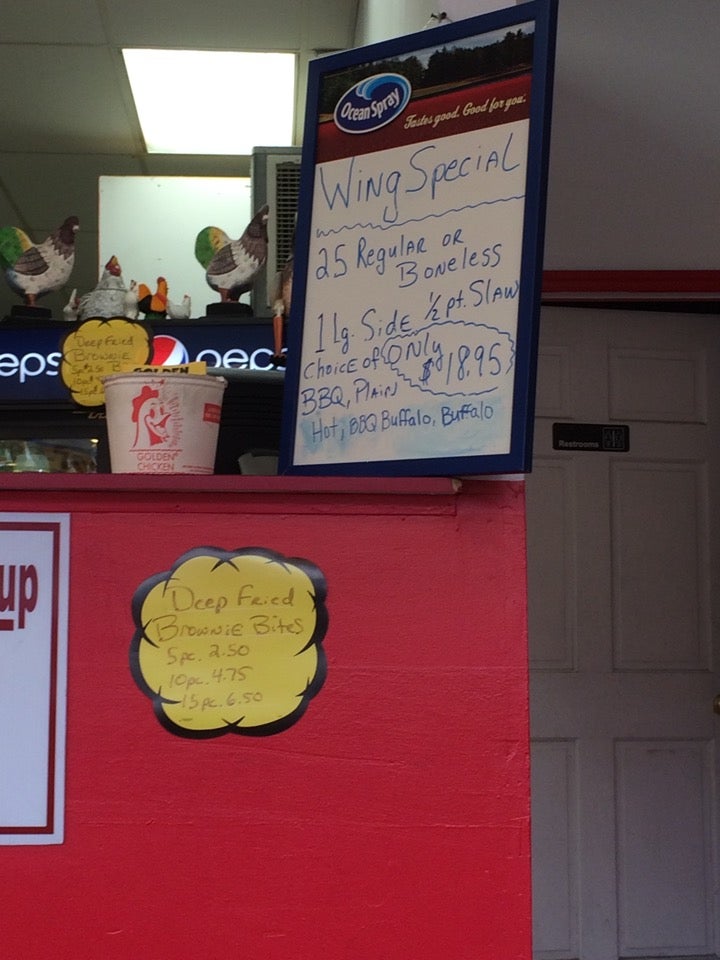 Ocean Spray
Tastes good. Good for you.
Wing Special
25 Regular or
Boneless
1 Lg. Side ½ pt. Slaw
Choice of ONLY
BBQ, Plain $18.95
Hot, BBQ Buffalo, Buffalo
eps
peps
Deep Fried
Brownie
GOLDEN
GOLDEN
CHICKEN
Restrooms
up
Deep Fried
Brownie Bites
5pc. 2.50
10pc. 4.75
15pc. 6.50